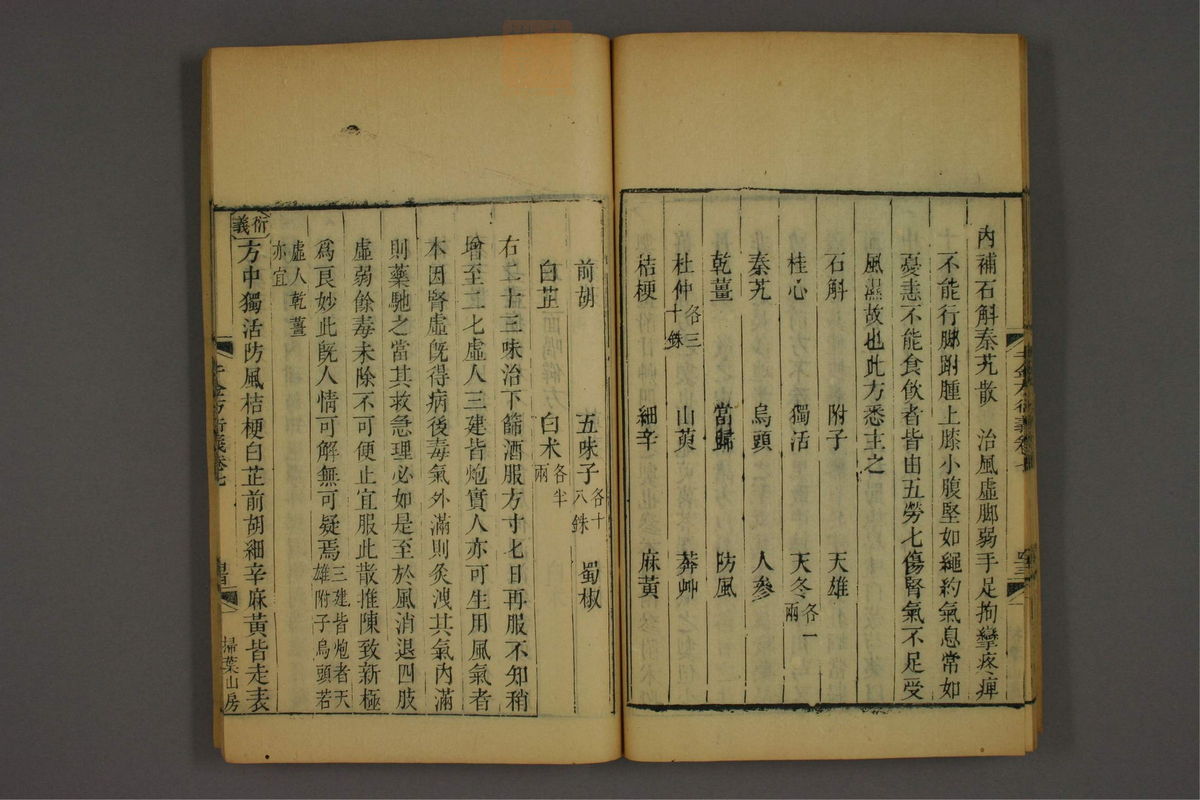 內補石斛秦艽散　治風虛脚弱手足拘攣疼痺
不能行脚跗腫上膝小腹堅如繩約氣息常如
憂恚不能食飲者皆由五勞七傷腎氣不足受
風濕故也此方悉主之
石斛　附子　天雄
桂心　獨活　天冬各一兩
秦艽　烏頭　人參
乾薑　當歸　防風
杜仲各三十銖　山萸　莽艸
桔梗　細辛　麻黃
前胡　五味子各十八銖　蜀椒
白芷　白朮各半兩
右二十三味治下篩酒服方寸七日再服不知稍
增至二七虛人三建皆炮實人亦可生用風氣者
本因腎虛旣得病後毒氣外滿則灸洩其氣內滿
則藥馳之當其救急理必如是至於風消退四肢
虛弱餘毒未除不可便止宜服此散推陳致新極
爲良妙此旣人情可解無可疑焉三建皆炮者天雄附子烏頭若
虛人乾薑亦宜
衍義
方中獨活防風桔梗白芷前胡細辛麻黃皆走表
千金方衍義卷七
掃葉山房